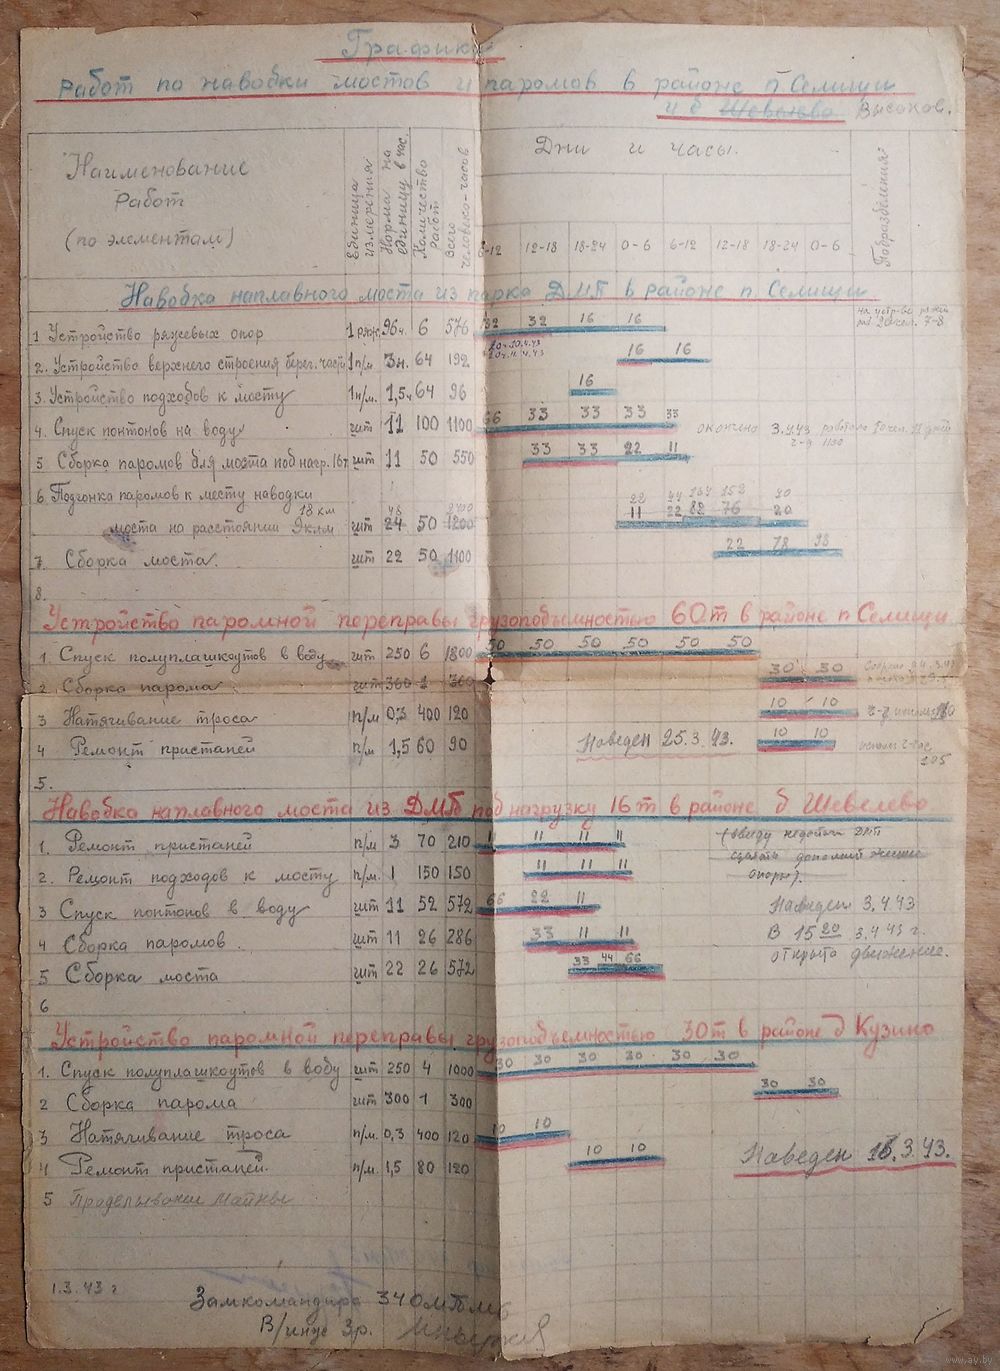 График
Работ по наводки мостов и паромов в районе п Селищи
и д Шевелево Высоков.
Наименование Работ (по элементам)
Единица измерения
Норма на единицу в час.
Количество Работ
Всего человеко-часов
Дни и часы.
Подразделения
6-12 12-18 18-24 0-6 6-12 12-18 18-24 0-6
Наводка наплавного моста из парка ДМП в районе п. Селищи
1 Устройство ряжевых опор 1 ряж. 96ч. 6 576 32 32 16 16
2. Устройство верхнего строения берег. части 1п/м. 3ч. 64 192 16 16
3. Устройство подходов к мосту 1п/м. 1,5ч 64 96 16
4. Спуск понтонов на воду шт 11 100 1100 66 33 33 33 33 окончено 3.4.43
5 Сборка паромов для моста под нагр. 16т шт 11 50 550 33 33 22 11
6. Подгонка паромов к месту наводки
18 км
22 44 164 152 90
моста на расстоянии 9клм шт 24 50 1200 11 22 82 76 20
7. Сборка моста. шт 22 50 1100 22 78 98
8.
Устройство паромной переправы грузоподъемностью 60т в районе п Селищи
1. Спуск полуплашкоутов в воду шт 250 6 1800 50 50 50 50 50 50
2 Сборка парома шт 360 1 360 30 30
3 Натягивание троса п/м 0,3 400 120 10 10
4 Ремонт пристаней п/м 1,5 60 90 Наведен 25.3.43. 10 10
5.
Наводка наплавного моста из ДМП под нагрузку 16т в районе д Шевелево
1. Ремонт пристаней п/м 3 70 210 11 11 11 11 (ввиду
2. Ремонт подходов к мосту п/м. 1 150 150 11 11 11 опоры).
3 Спуск понтонов в воду шт 11 52 572 66 22 11 Наведен 3.4.43
4 Сборка паромов шт 11 26 286 33 11 11 в 15 20 3.4.43 г.
5 Сборка моста шт 22 26 572 33 44 66 открыто движение.
6
Устройство паромной переправы грузоподъемностью 30т в районе д Кузино
1. Спуск полуплашкоутов в воду шт 250 4 1000 30 30 30 30 30 30
2 Сборка парома шт 300 1 300 30 30
3 Натягивание троса п/м. 0,3 400 120 10 10
4 Ремонт пристаней. п/м. 1,5 80 120 10 10 Наведен 18.3.43.
5
1.3.43 г
Замкомандира 34 ОМПМБ
В/инж 3р.
www.ay.by